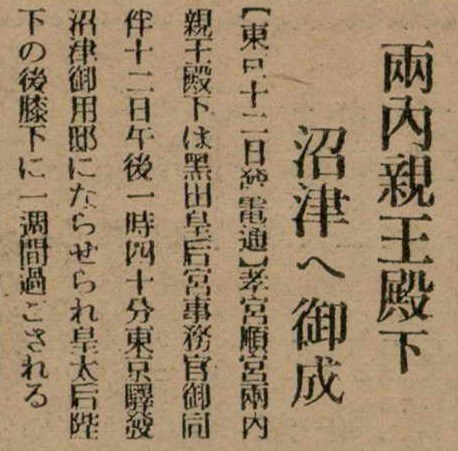 兩內親王殿下
沼津へ御成
【東京十二日發電通】孝宮順宮兩內
親王殿下は黑田皇后宮事務官御同
伴十二日午後一時四十分東京驛發
沼津御用邸にならせられ皇太后陛
下の後膝下に一週間過ごされる